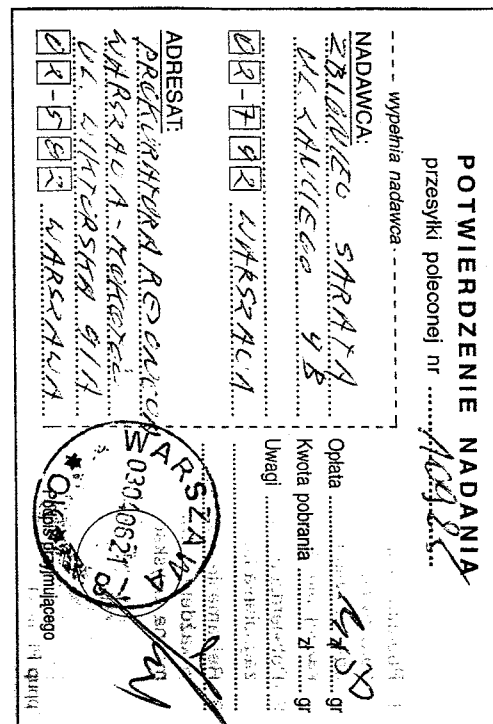 POTWIERDZENIE NADANIA
przesyłki poleconej nr
wypełnia nadawca
NADAWCA:
ZBIGNIEW SARATA
UL. LANCIEGO 4B
02-792 WARSZAWA
ADRESAT:
PROKURATURA REJONOWA
WARSZAWA - MOKOTÓW
UL. WIKTORSKA 91A
02-582 WARSZAWA
Opłata zł gr
Kwota pobrania zł gr
Uwagi
WARSZAWA
Podpis przyjmującego